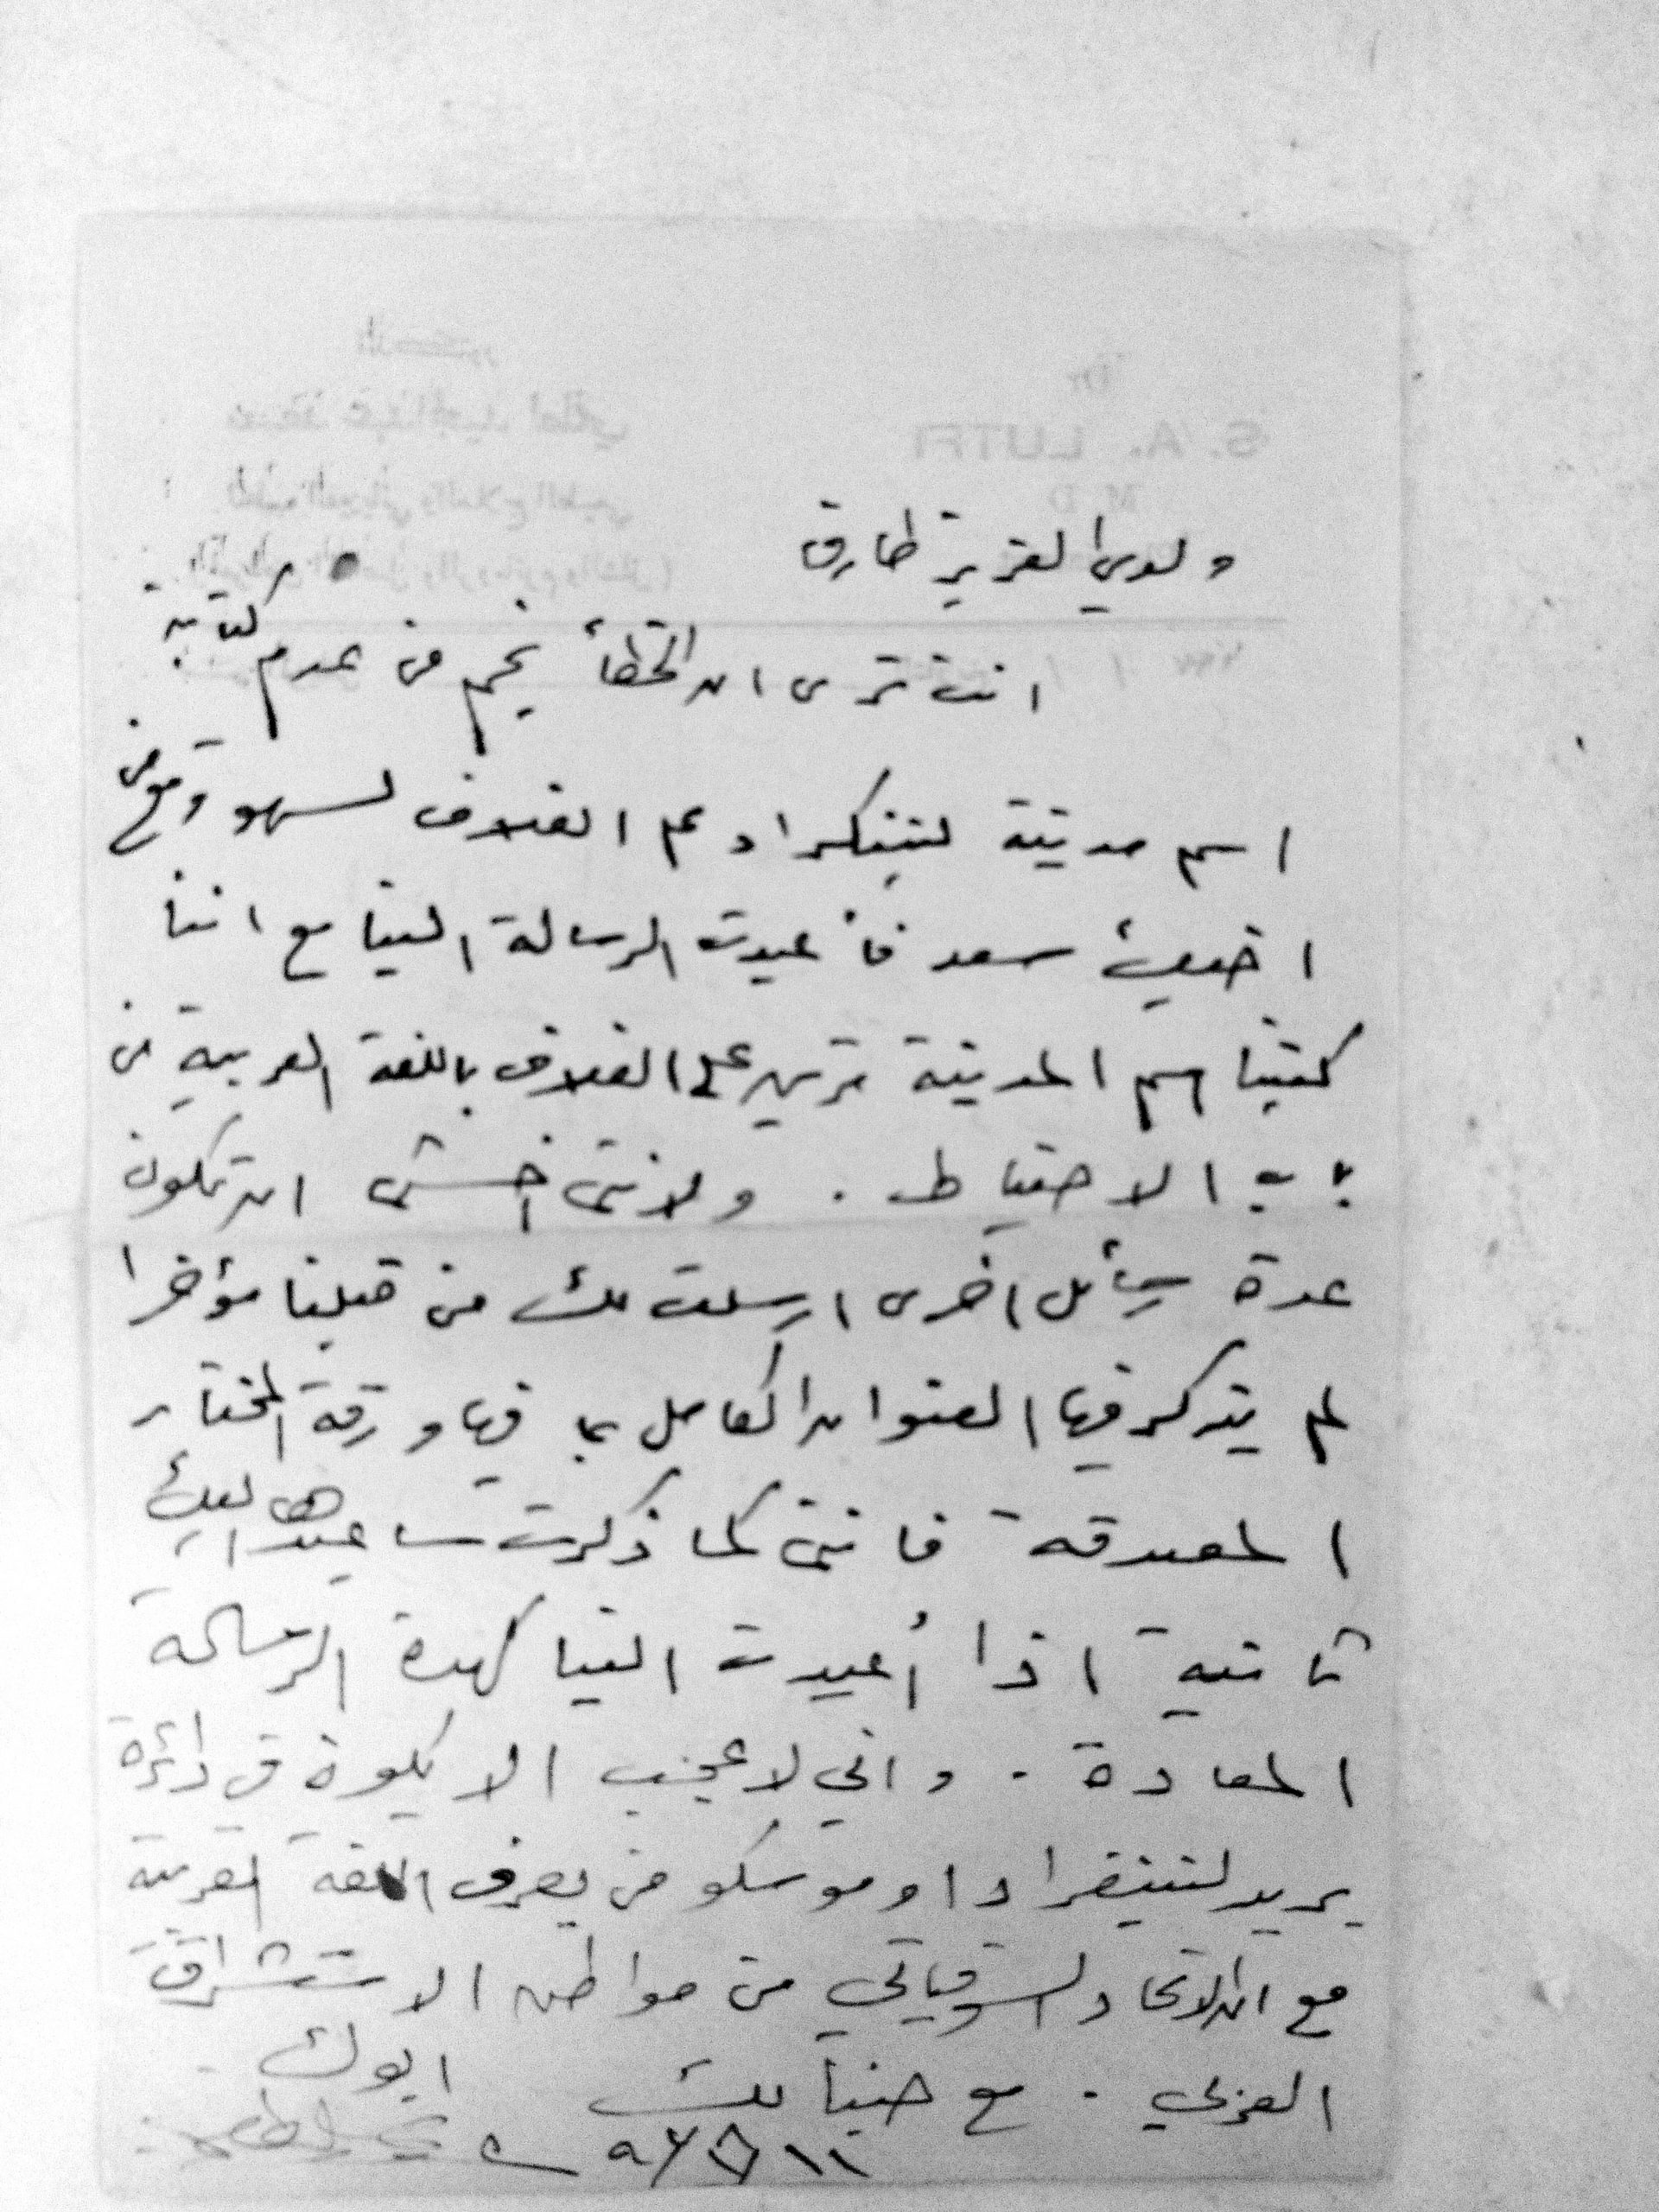 ولدي العزيز طارق
انت ترى ان الخطأ نجم من عدم كتابة
اسم مدينة لننكراد على الغلاف لسهو وقع من
اخيك سعد فأعيدت الرسالة الينا مع اننا
كتبنا اسم المدينة مرتين على الغلاف باللغة العربية من
باب الاحتياط . ولانني اخشى ان تكون
عدة رسائل اخرى ارسلت لك من قبلنا مؤخرا
لم يذكر فيها العنوان الكامل بما فيها ورقة المختار
المصدقة فانني كما ذكرت ساعيدها اليك
ثانية اذا أعيدت الينا كهذه الرسالة
المعادة . واني لاعجب الا يكون في دائرة
بريد لننيغراد او موسكو من يعرف اللغة العربية
مع ان الاتحاد السوفياتي من مواطن الاستشراق
العربي . مع حبنا لك
ابوك
S. A. LUTFI
M. D.
Dr
الدكتور